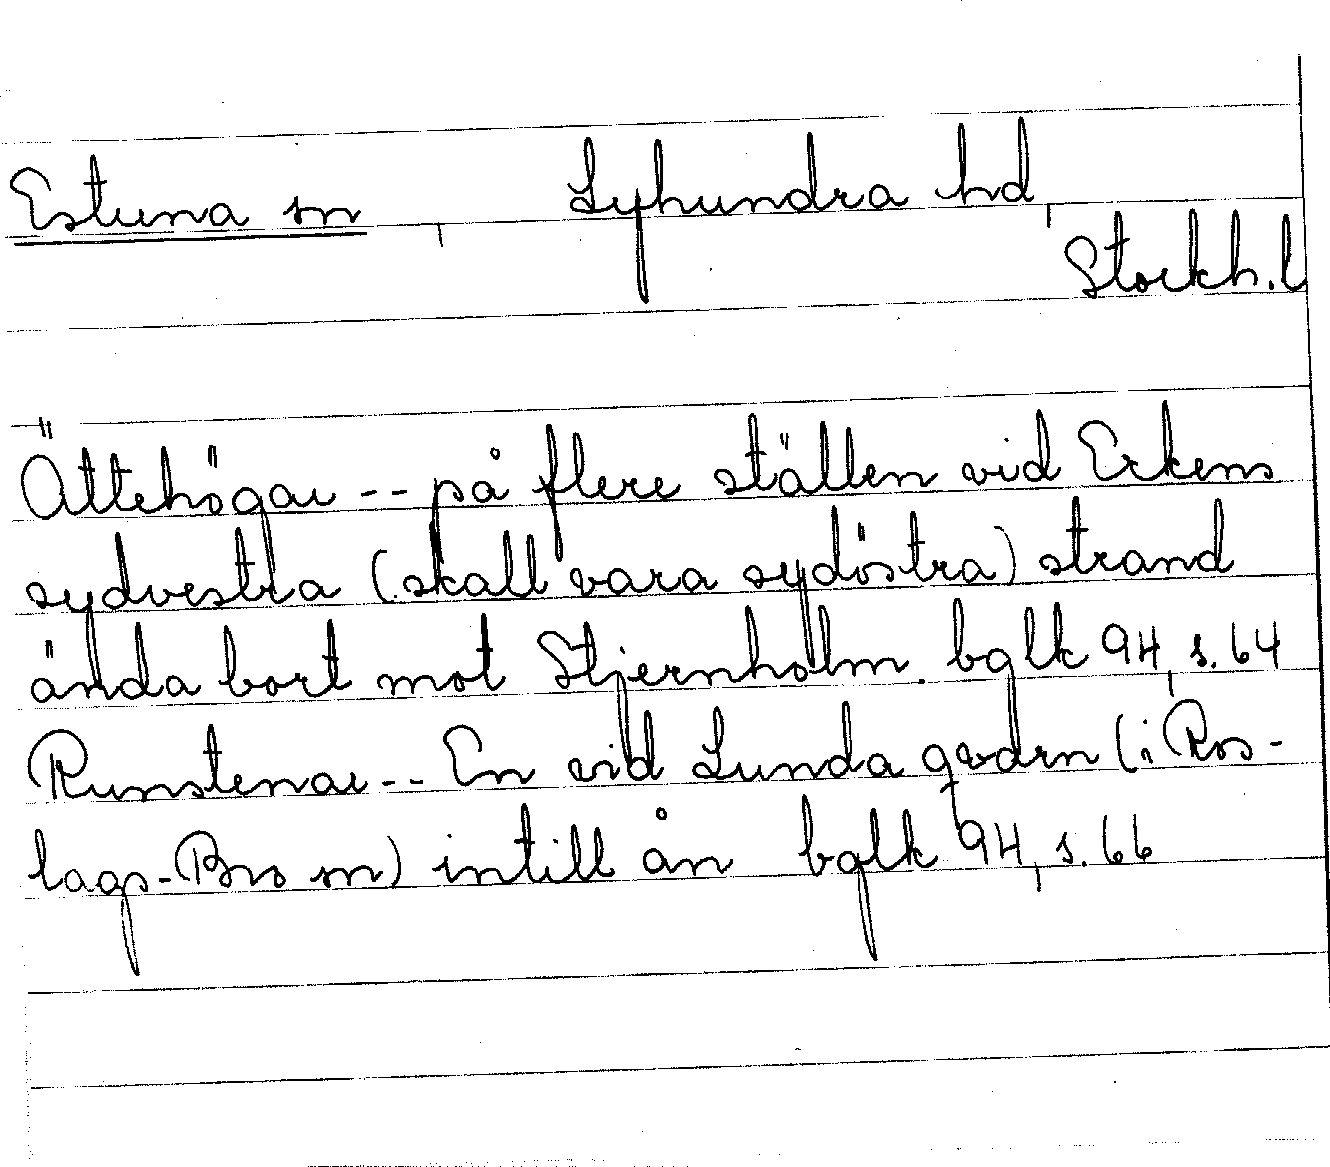 Estuna sn, Lyhundra hd,
Stockh. l
Ättehögar -- på flere ställen vid Erkens
sydvestra (skall vara sydöstra) strand
ända bort mot Stjernholm. bglk 94, s. 64
Runstenar -- En vid Lunda qvarn (i Ros-
lags-Bro sn) intill ån bglk 94, s. 66